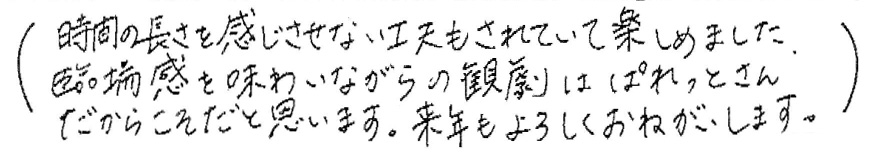 (時間の長さを感じさせない工夫もされていて楽しめました.
臨場感を味わいながらの観劇はぱれっとさん
だからこそだと思います。来年もよろしくおねがいします。)